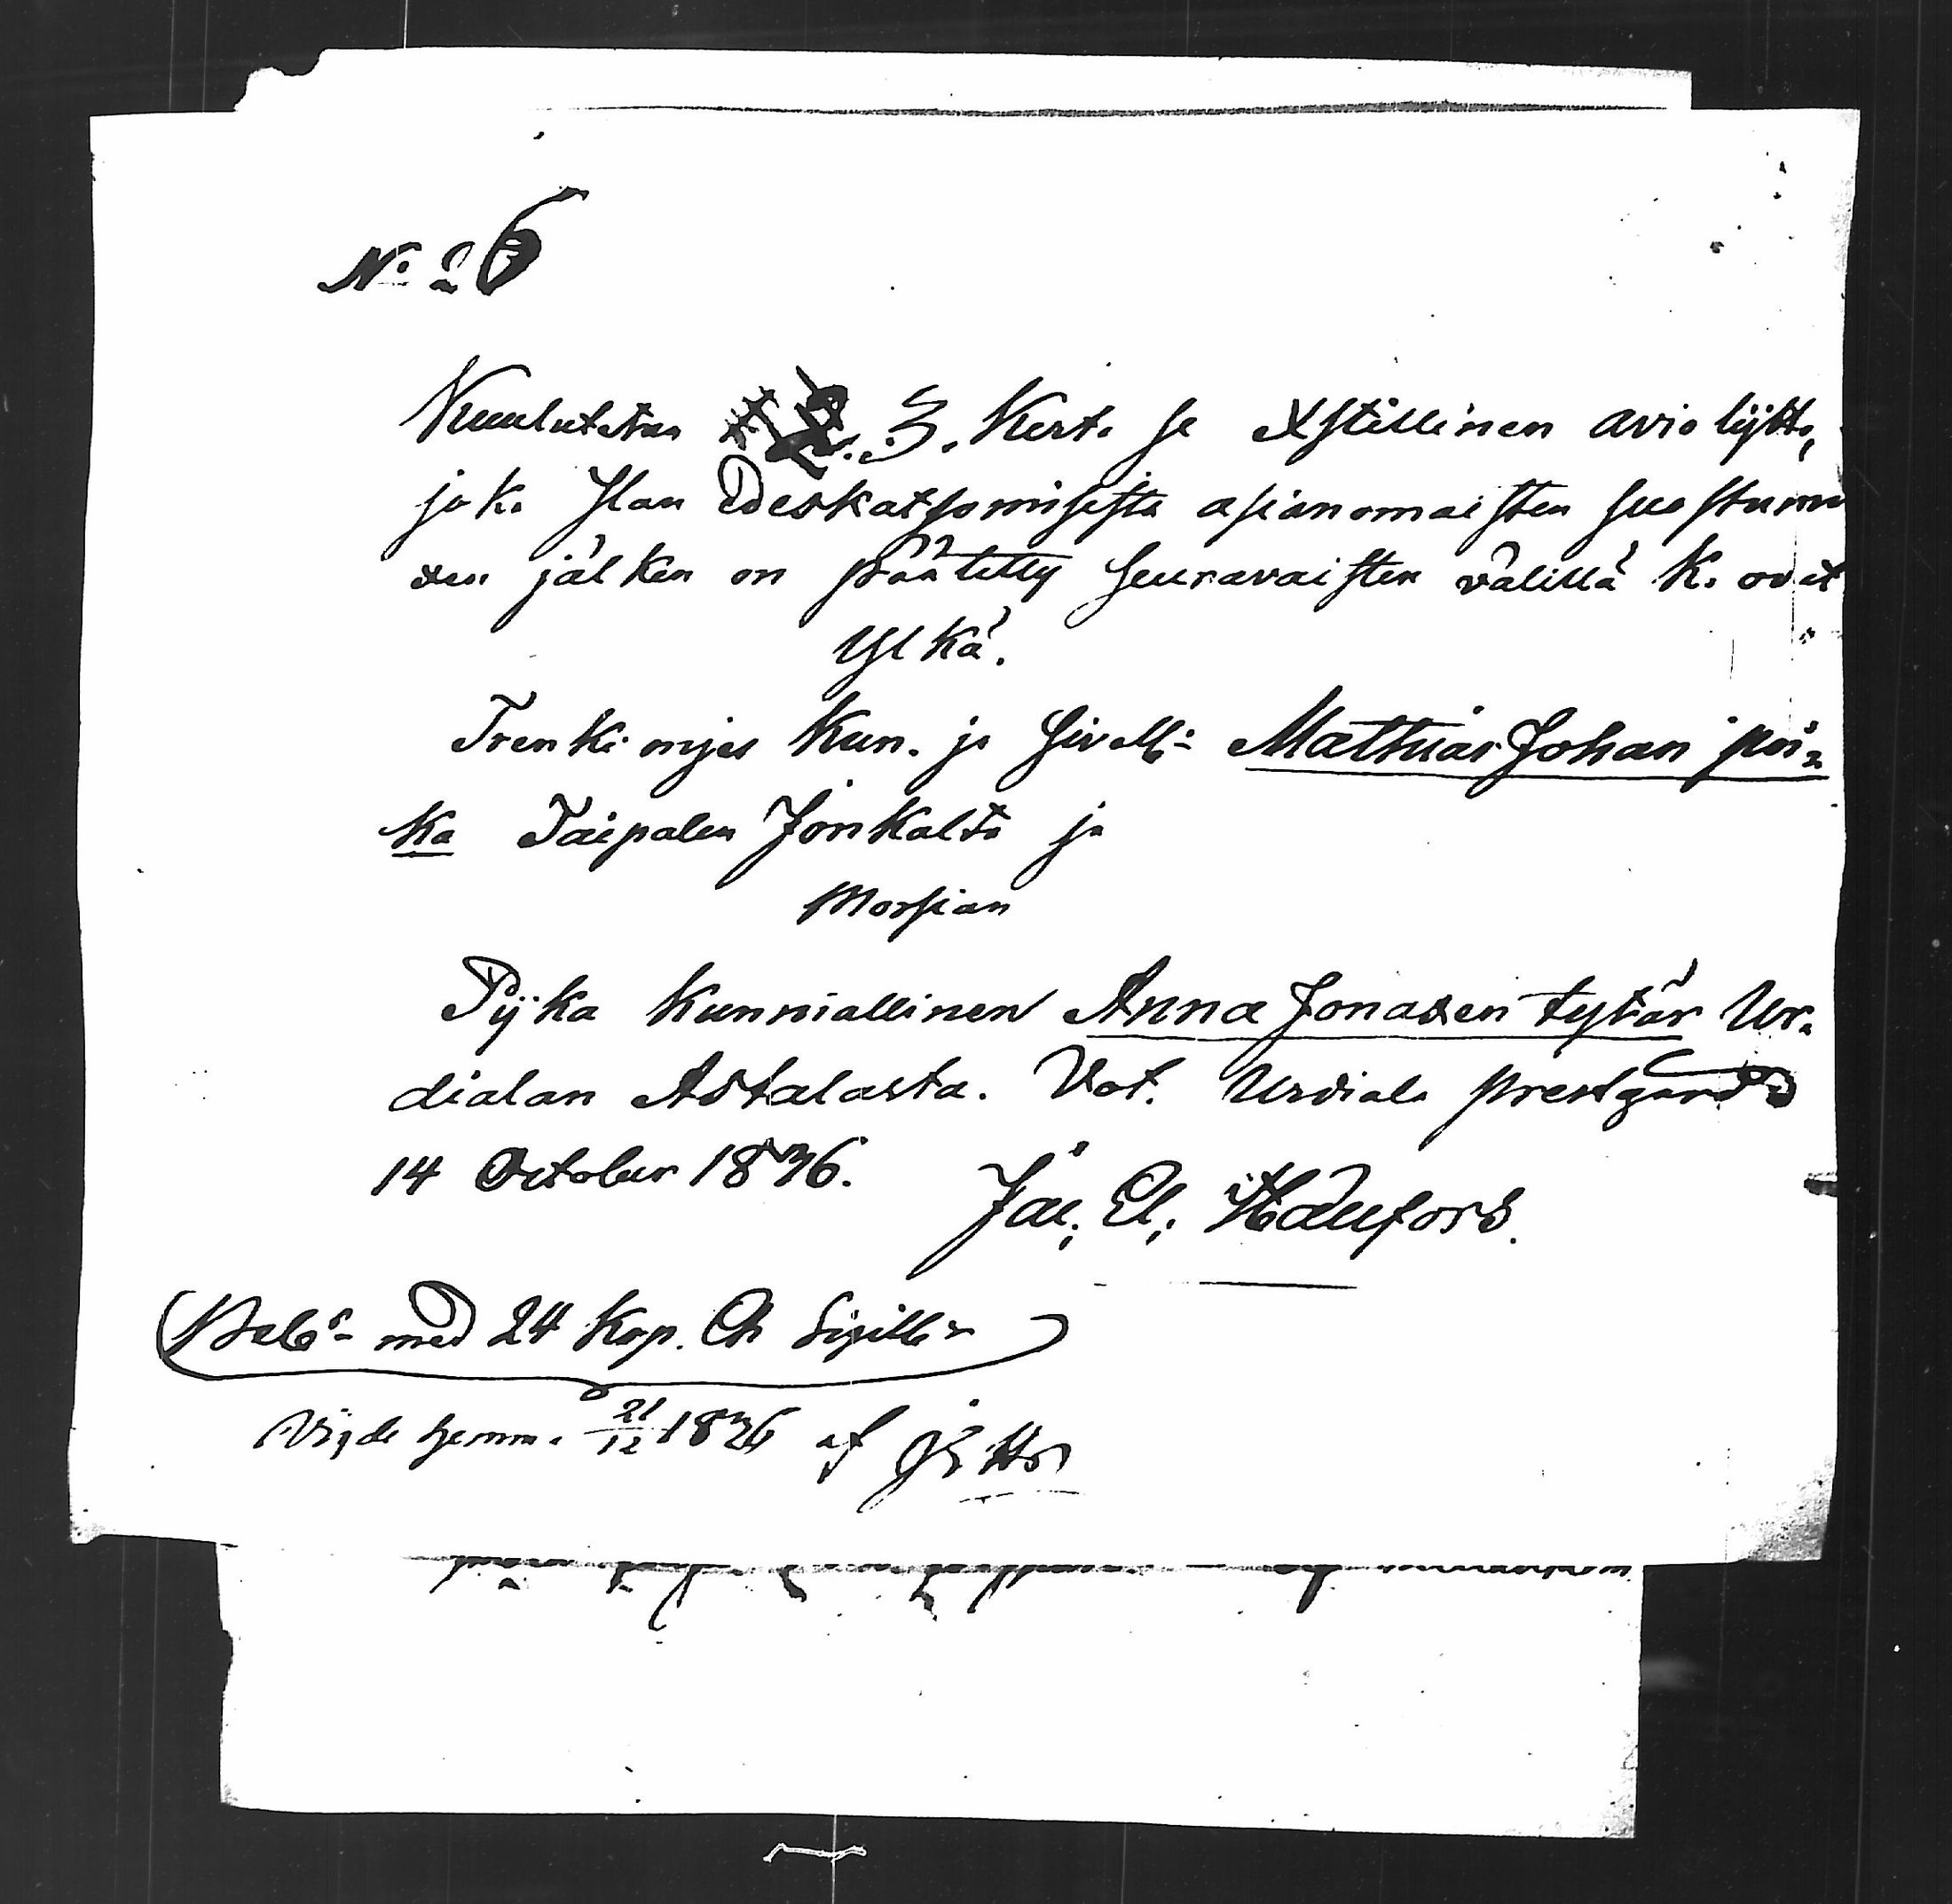 No 26
Kuulutetan 3. Kert. se Xstillinen avio lijtto,
jok. Ilan Edeskatsomisesta asianomaisten suostumu
xen jälken on päätetty seuravaisten välillä k. ovat
Ylkä.
Trenki mjes Kun. ja sivell: Mathias Johan poi=
ka Taipalen Jonkalta ja
Morsian
Pijka kunniallinen Anna Jonaxen tytär Ur=
dialan Astalasta. Vot. Urdiala prestgård
14 October 1836. Jac. El. Hallfors.
med 24 Kop. Ch Sigill
Vigde hemma 21/12 1836 af